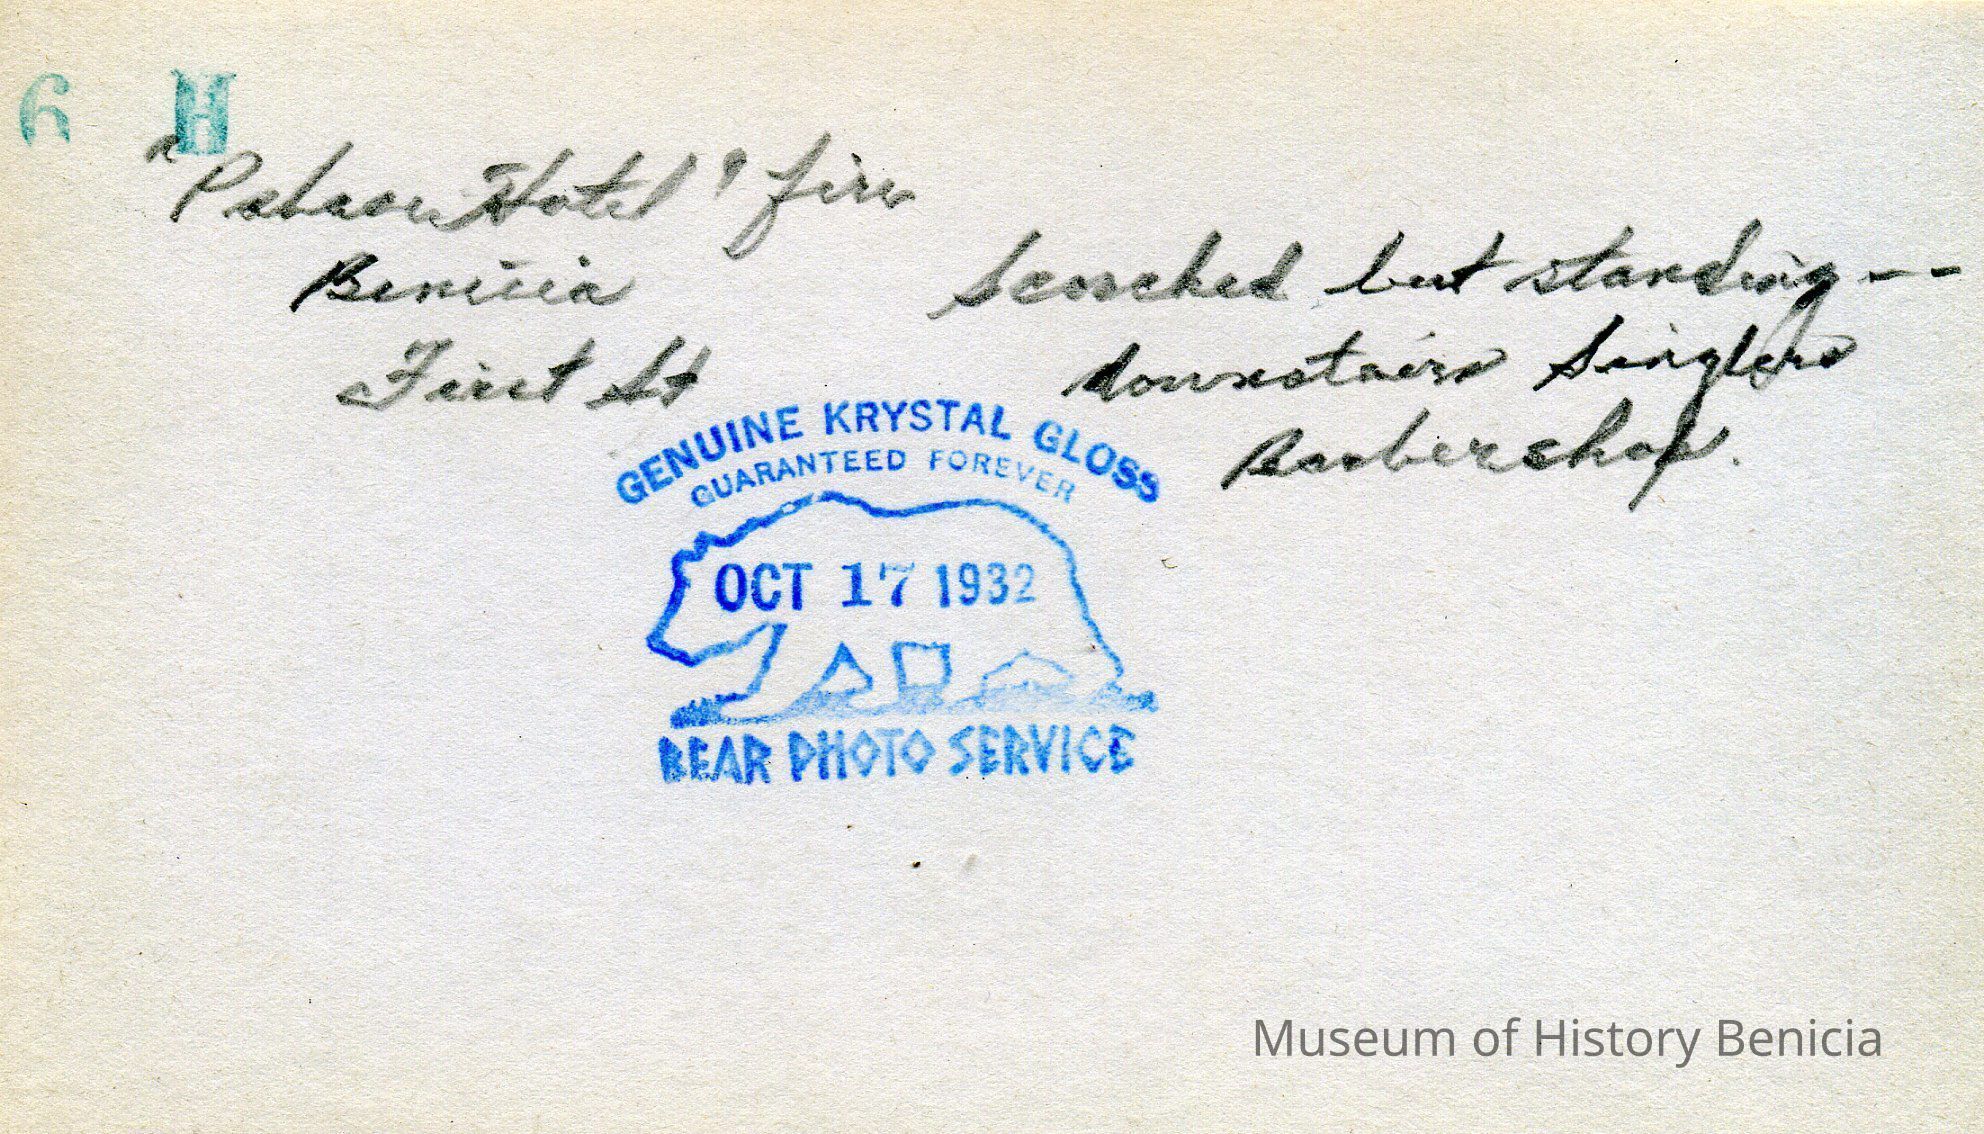 6 H
"Palace Hotel" fire
Benicia
First St
Scorched but standing--
downstairs Singlers
Barbershop.
GENUINE KRYSTAL GLOSS
GUARANTEED FOREVER
OCT 17 1932
BEAR PHOTO SERVICE
Museum of History Benicia